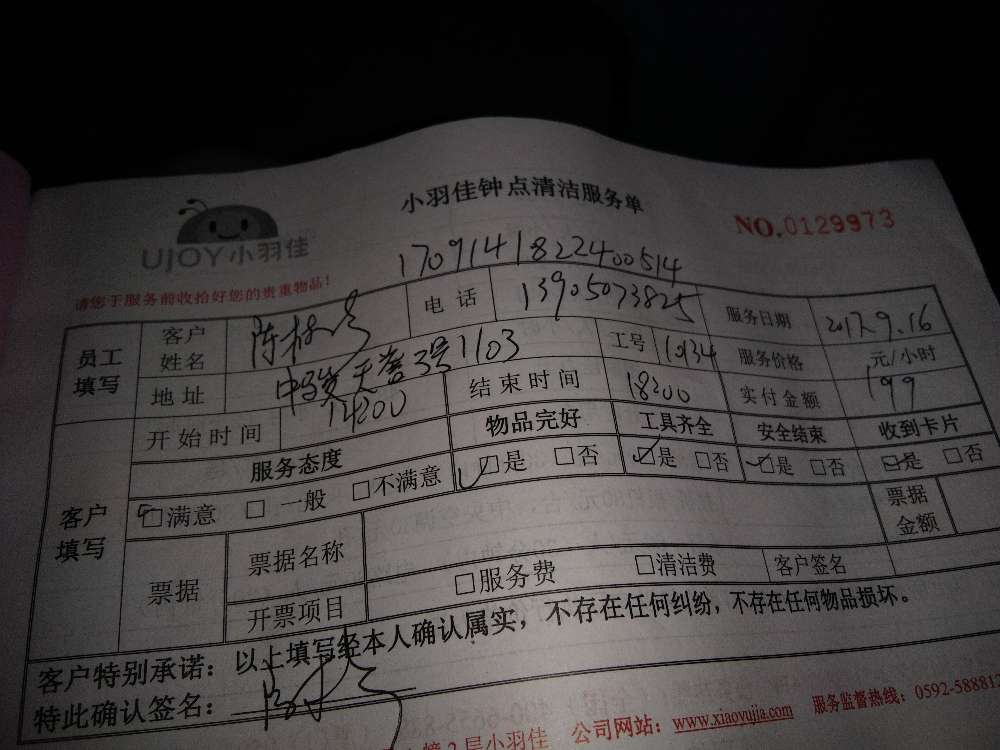 小羽佳钟点清洁服务单
NO.0129973
UJOY小羽佳
1709141822400514
请您于服务前收拾好您的贵重物品!
员工填写 客户姓名 陈 电话 13905073825 服务日期 2017.9.16
地址 3号1103 工号 10134 服务价格 元/小时
开始时间 14200 结束时间 18200 实付金额 199
客户填写 服务态度 物品完好 工具齐全 安全结束 收到卡片
□满意 □一般 □不满意 □是 □否 □是 □否 □是 □否 □是 □否
票据 票据名称 票据金额
开票项目 □服务费 □清洁费 客户签名
客户特别承诺：以上填写经本人确认属实，不存在任何纠纷，不存在任何物品损坏。
特此确认签名：
2层小羽佳 公司网站：www.xiaoyujia.com 服务监督热线：0592-588812